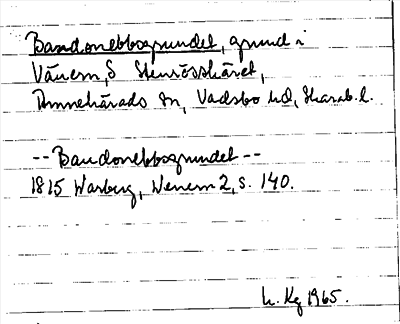 Bandonebbsgrundet, grund i
Vänern, S Stenrösskäret,
Amnehärads sn, Vadsbo hd, Skarab. l.
-- Bandonebbsgrundet --
1815 Warberg, Wenern 2, s. 140.
Kg 1965.